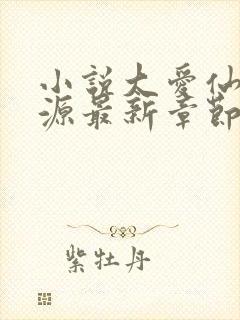 小說太愛仙
源最新章節
紫牡丹